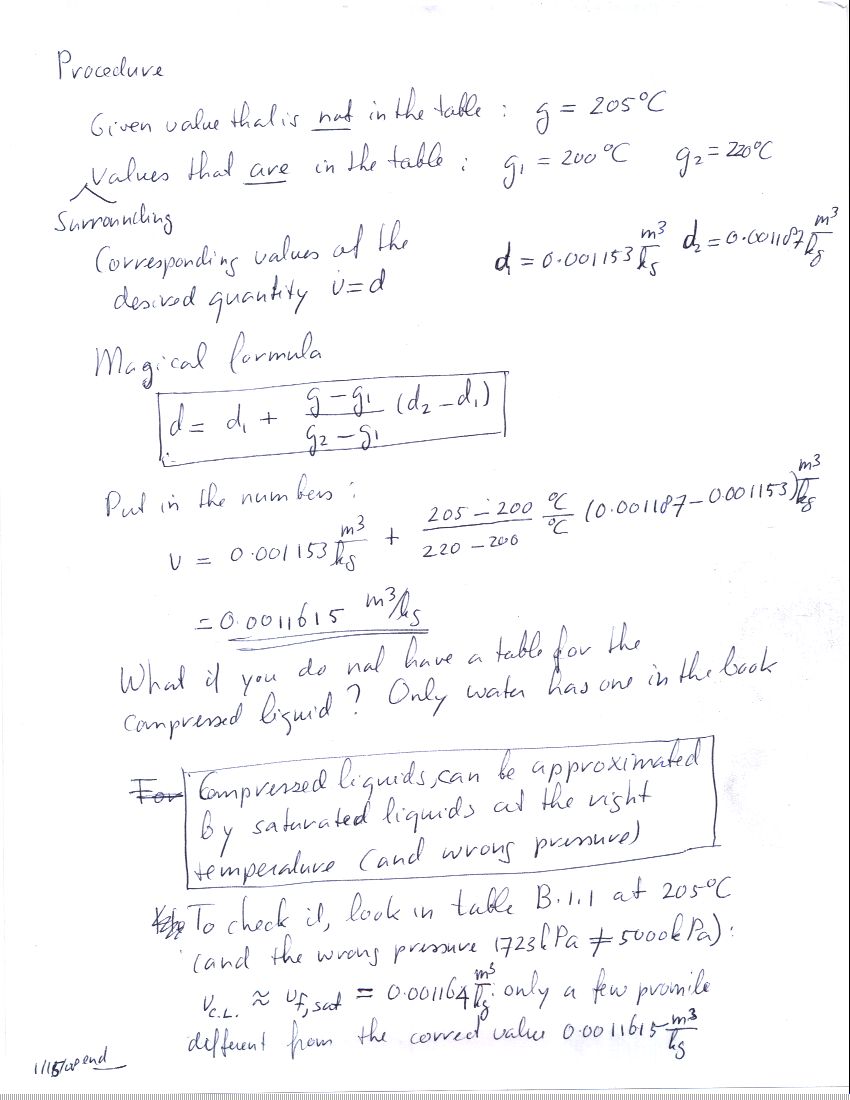 Procedure
Given value that is not in the table : g = 205°C
Values that are in the table : g₁ = 200°C g₂ = 220°C
Surrounding
Corresponding values of the
desired quantity v = d d₁ = 0.001153 m³/kg d₂ = 0.001187 m³/kg
Magical formula
d = d₁ + (g - g₁)/(g₂ - g₁) (d₂ - d₁)
Put in the numbers :
v = 0.001153 m³/kg + (205 - 200)/(220 - 200) °C/°C (0.001187 - 0.001153) m³/kg
= 0.0011615 m³/kg
What if you do not have a table for the
compressed liquid? Only water has one in the book
For Compressed liquids, can be approximated
by saturated liquids at the right
temperature (and wrong pressure)
To check it, look in table B.1.1 at 205°C
(and the wrong pressure 1723 kPa ≠ 5000 kPa) :
v_C.L. ≈ v_f,sat = 0.001164 m³/kg : only a few promile
different from the correct value 0.0011615 m³/kg
end